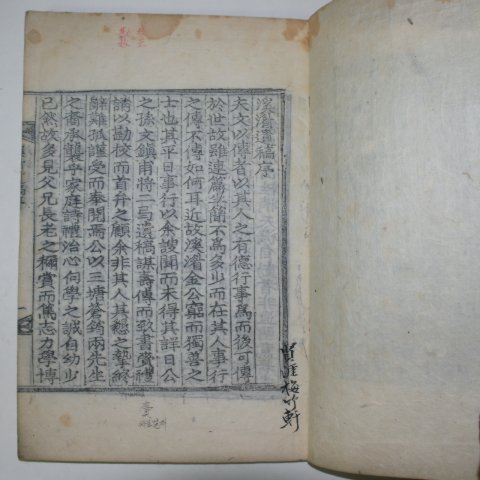 溪澘遺稿序
夫文以傳者以其人之有德行事爲而後可傳
於世故雖連篇竹簡不爲多少而在其人事行
之傳不傳如何耳近故溪澘金公窮而獨善之
士也其平日事行以余謏聞而未得其詳日公
之孫文鎭甫將二局遺稿謀壽傳而致書
請以勘校而首弁之顧余非其人其懇之摯終
辭難孤謹受而奉閱焉公以三塘 兩先生
之裔承襲乎家庭詩禮治心向學之誠自幼少
已然故多見父兄長老之稱賞而篤志力學博
梅竹軒